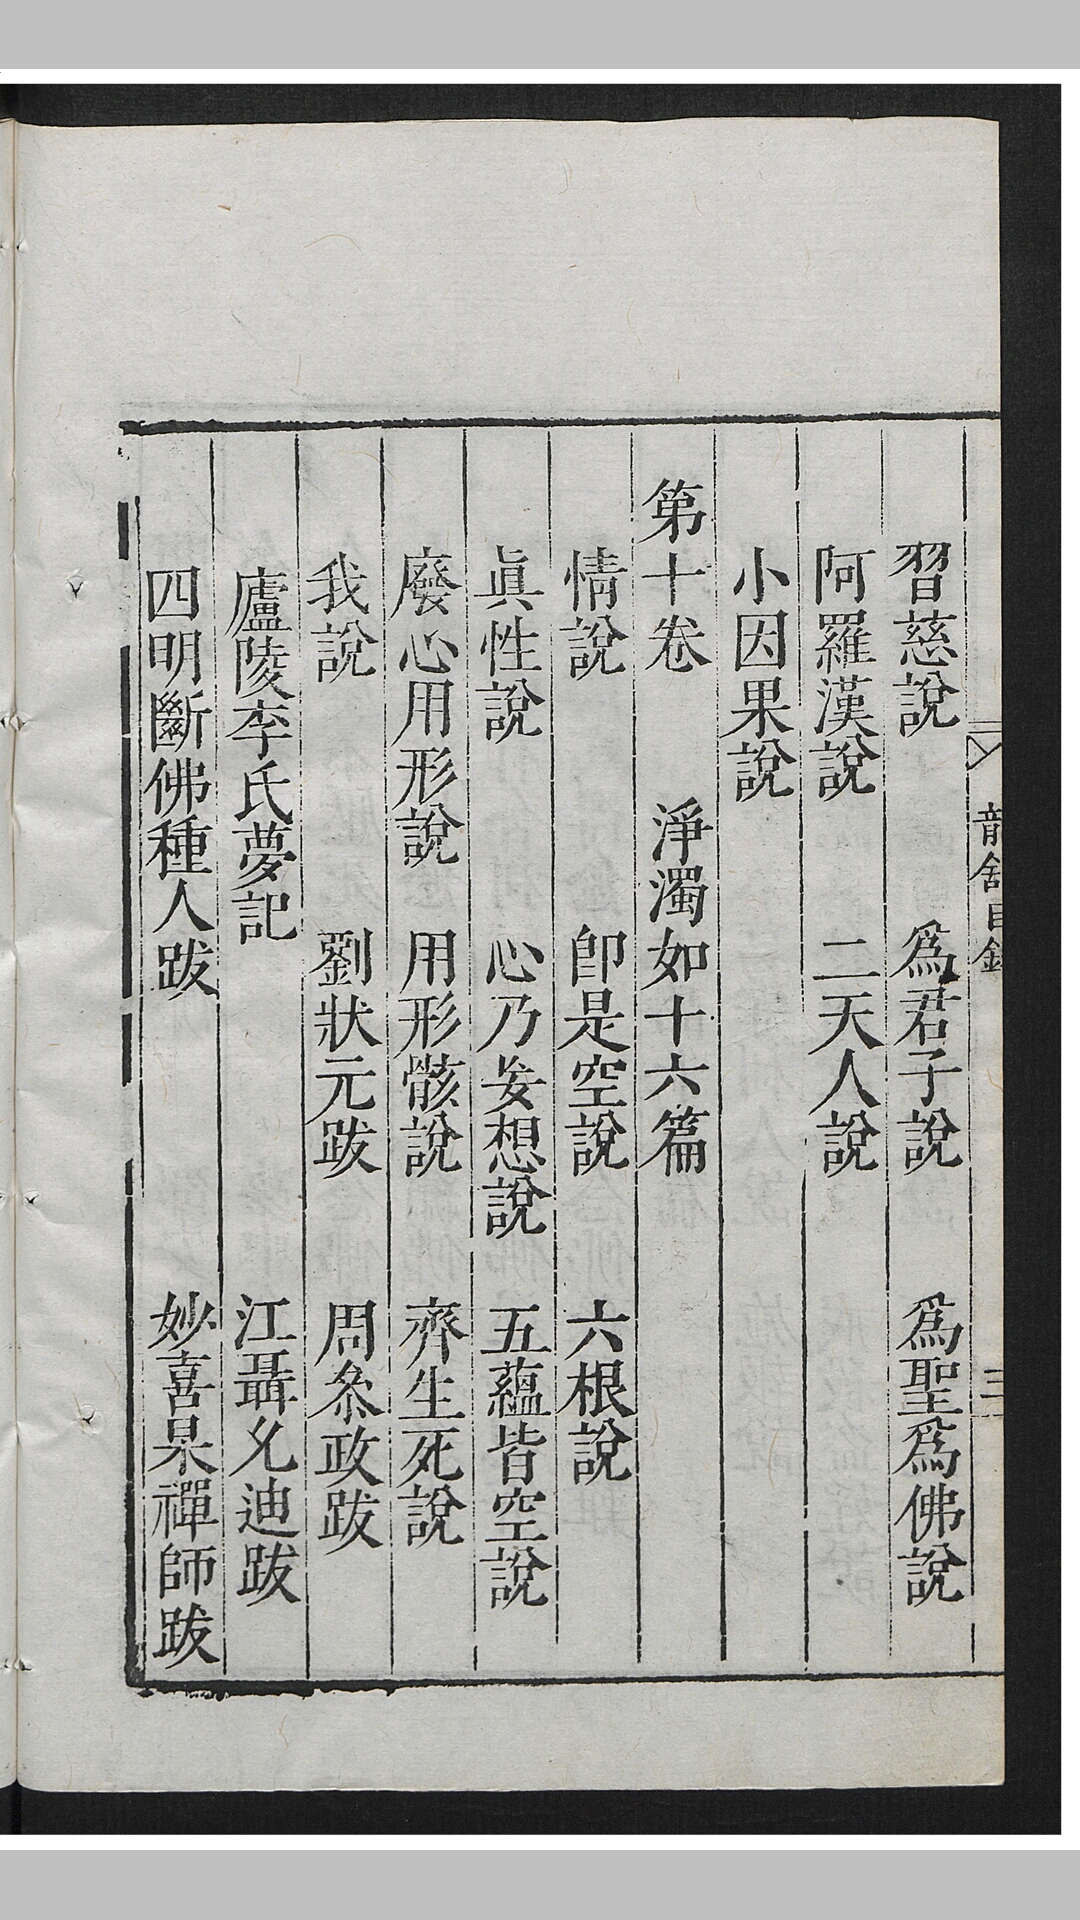 習慈說　爲君子說　爲聖爲佛說
阿羅漢說　二天人說
小因果說
第十卷　淨濁如十六篇
情說　卽是空說　六根說
眞性說　心乃妄想說　五蘊皆空說
廢心用形說　用形骸說　齊生死說
我說　劉狀元跋　周叅政跋
廬陵李氏夢記　江聶允迪跋
四明斷佛種人跋　妙喜杲禪師跋
龍舒目錄　三